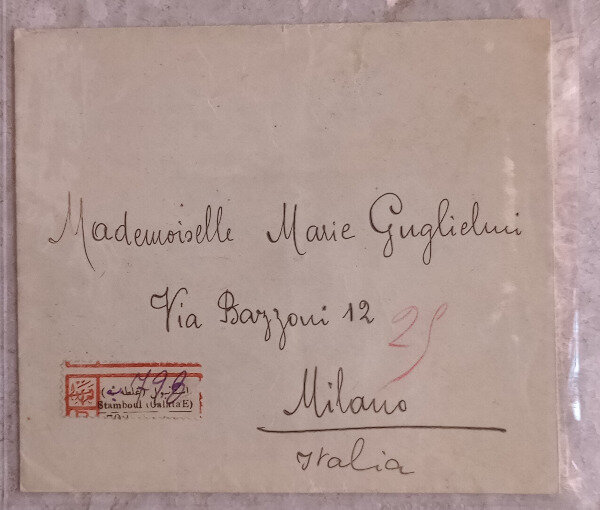 Mademoiselle Marie Guglielmi
Via Bazzoni 12
25
Milano
Italia
798
Stamboul (Galata E)